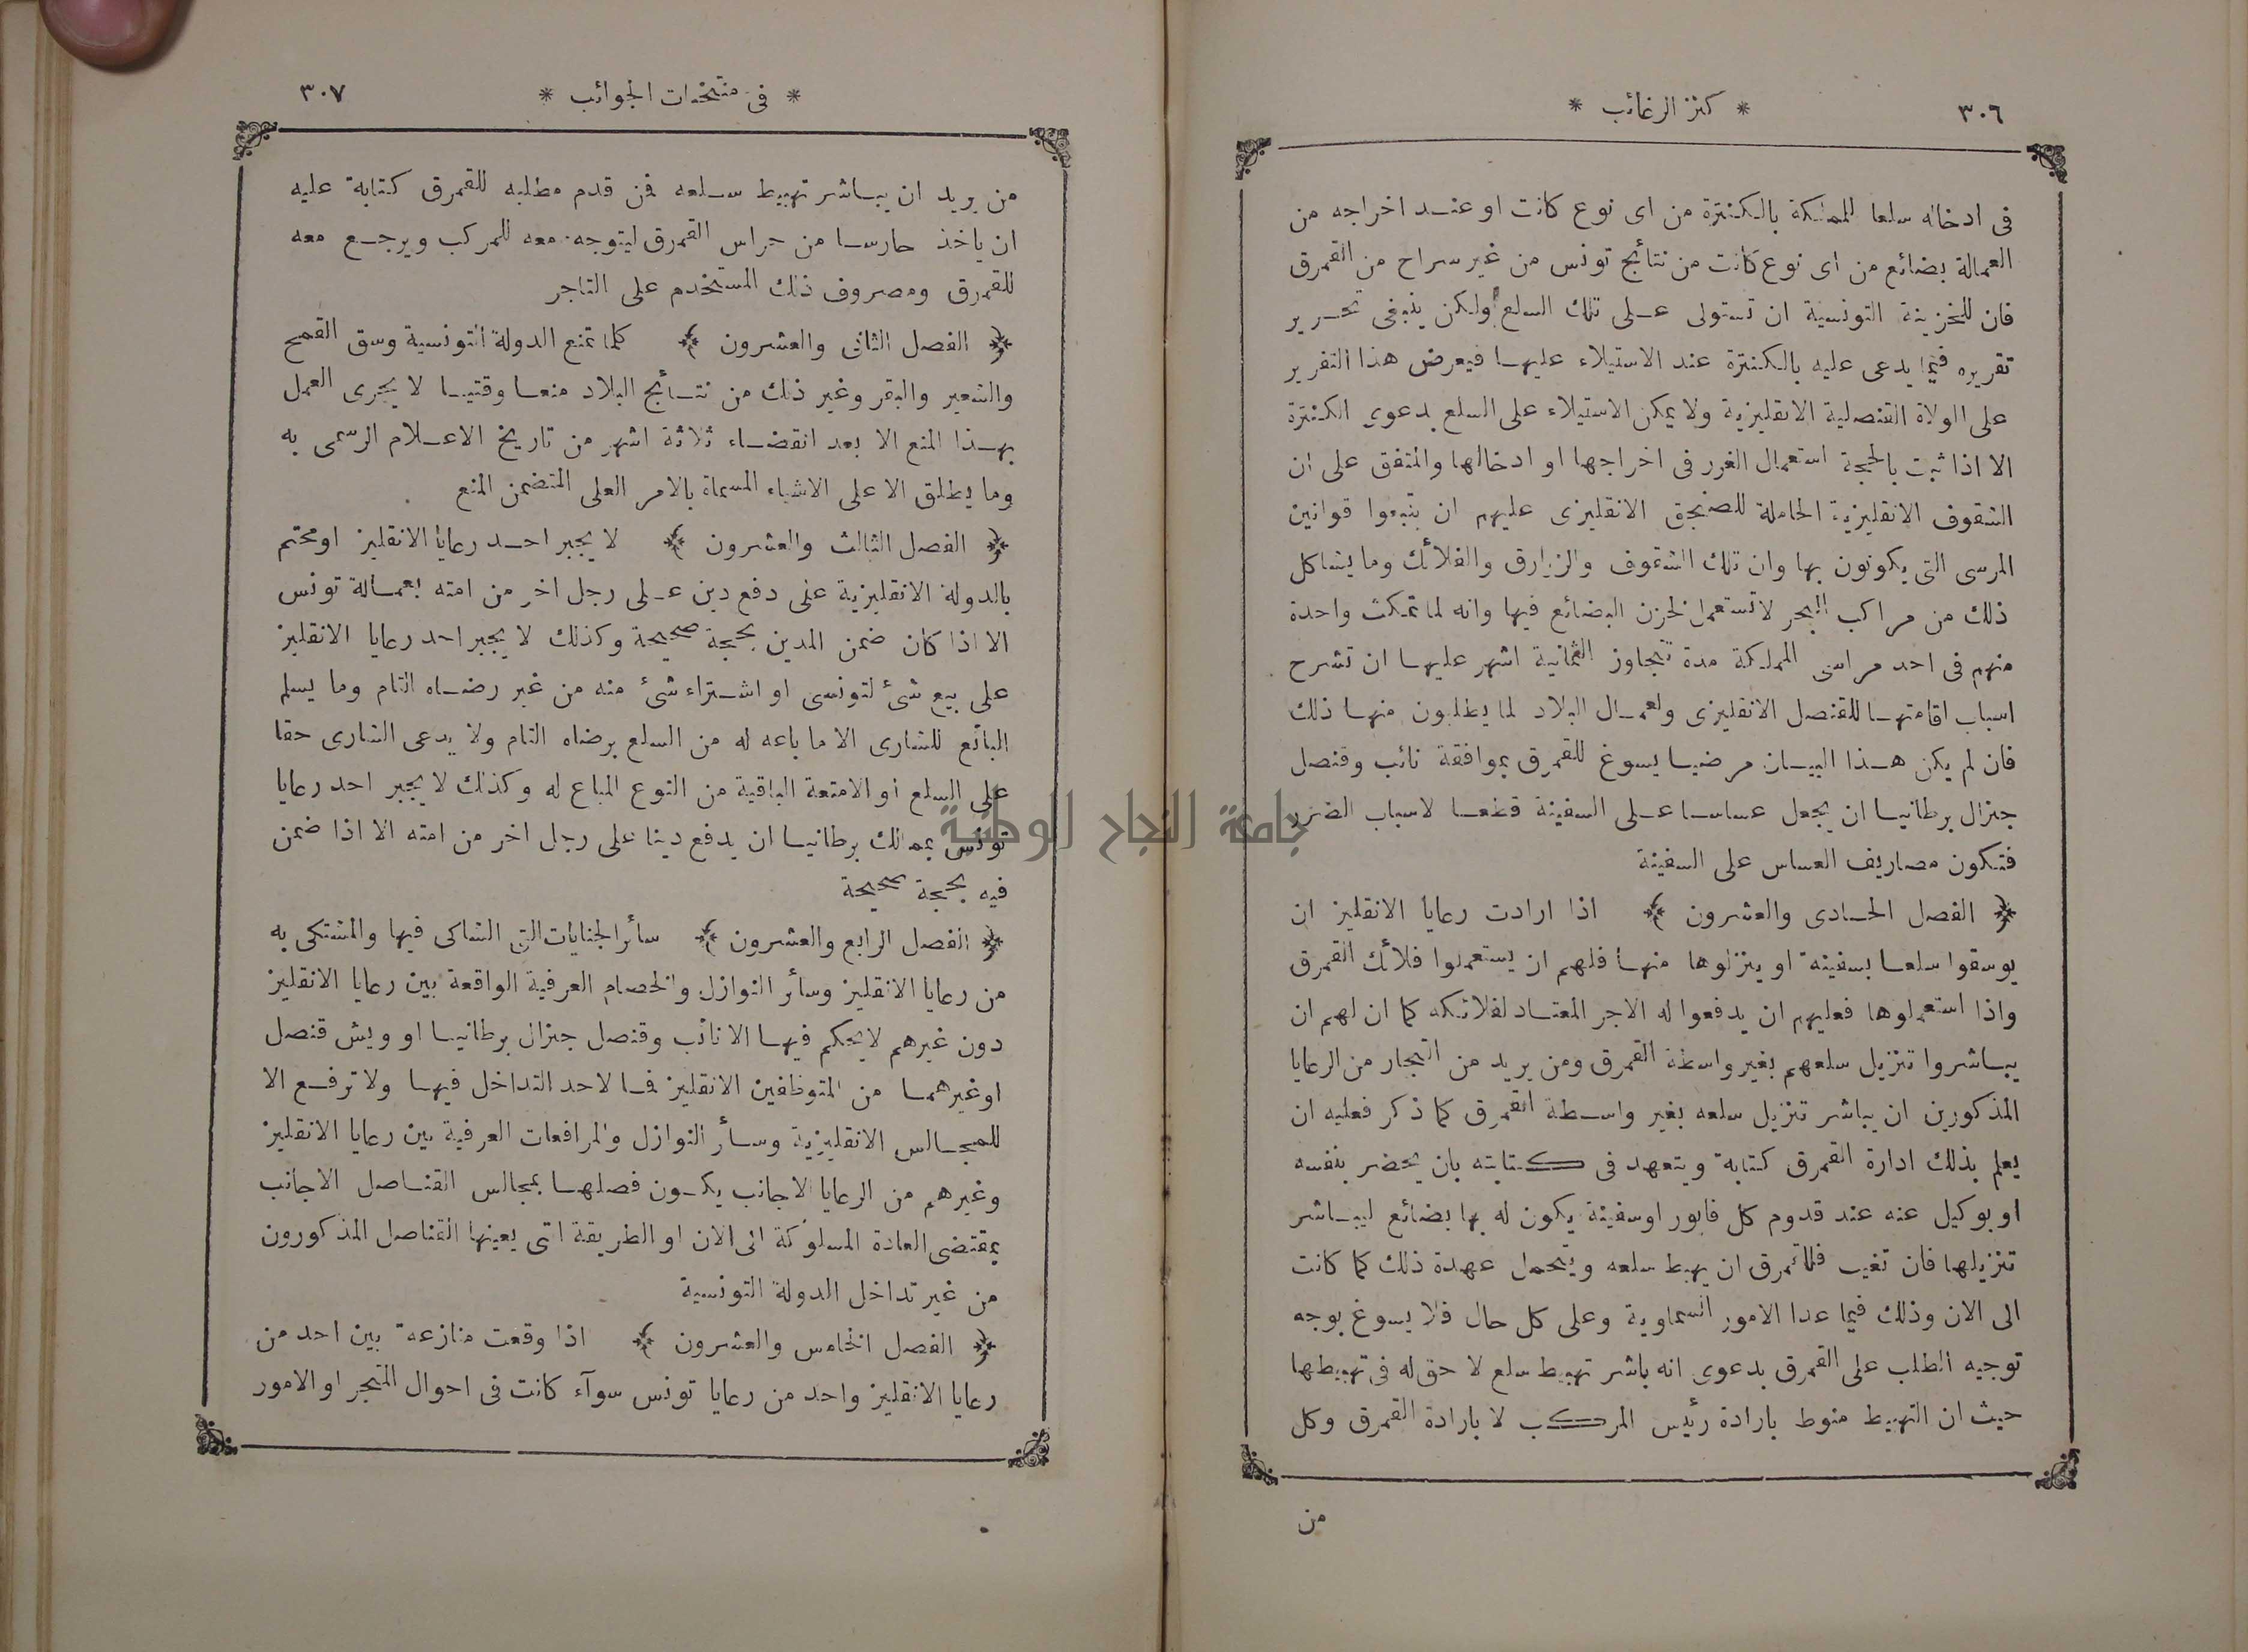 ٣٠٦
* كنز الرغائب *
فى ادخاله سلعا للمملكة بالكنترة من اى نوع كانت او عند اخراجه من
العمالة بضائع من اى نوع كانت من نتائج تونس من غير سراح من القمرق
فان للخزينة التونسية ان تستولى على تلك السلع ولكن ينبغى تحرير
تقريره فيما يدعى عليه بالكنترة عند الاستيلاء عليها فيعرض هذا التقرير
على الولاة القنصلية الانقليزية ولا يمكن الاستيلاء على السلع بدعوى الكنترة
الا اذا ثبت بالحجة استعمال الغرر فى اخراجها او ادخالها والمتفق على ان
الشقوف الانقليزية الحاملة للصنجق الانقليزى عليهم ان يتبعوا قوانين
المرسى التى يكونون بها وان تلك الشقوف والزوارق والفلائك وما يشاكل
ذلك من مراكب البحر لا تستعمل لخزن البضائع فيها وانه لما تمكث واحدة
منهم فى احد مراسى المملكة مدة تتجاوز الثمانية اشهر عليها ان تشرح
اسباب اقامتها للقنصل الانقليزى ولعمال البلاد لما يطلبون منها ذلك
فان لم يكن هذا البيان مرضيا يسوغ للقمرق بموافقة نائب وقنصل
جنرال برطانيا ان يجعل عساسا على السفينة قطعا لاسباب الضرر
فتكون مصاريف العساس على السفينة
﴿ الفصل الحادى والعشرون ﴾ اذا ارادت رعايا الانقليز ان
يوسقوا سلعا بسفينة او ينزلوها منها فلهم ان يستعملوا فلائك القمرق
واذا استعملوها فعليهم ان يدفعوا له الاجر المعتاد لفلائكه كما ان لهم ان
يباشروا تنزيل سلعهم بغير واسطة القمرق ومن يريد من التجار من الرعايا
المذكورين ان يباشر تنزيل سلعه بغير واسطة القمرق كما ذكر فعليه ان
يعلم بذلك ادارة القمرق كتابة ويتعهد فى كتابته بان يحضر بنفسه
او بوكيل عنه عند قدوم كل فابور او سفينة يكون له بها بضائع ليباشر
تنزيلها فان تغيب فللقمرق ان يهبط سلعه ويتحمل عهدة ذلك كما كانت
الى الان وذلك فيما عدا الامور السماوية وعلى كل حال فلا يسوغ بوجه
توجيه الطلب على القمرق بدعوى انه باشر تهبيط سلع لا حق له فى تهبيطها
حيث ان التهبيط منوط بارادة رئيس المركب لا بارادة القمرق وكل
من
* فى منتخبات الجوائب *
٣٠٧
من يريد ان يباشر تهبيط سلعه فمن قدم مطلبه للقمرق كتابة عليه
ان ياخذ حارسا من حراس القمرق ليتوجه معه للمركب ويرجع معه
للقمرق ومصروف ذلك المستخدم على التاجر
﴿ الفصل الثانى والعشرون ﴾ كلما تمنع الدولة التونسية وسق القمح
والشعير والبقر وغير ذلك من نتائج البلاد منعا وقتيا لا يجرى العمل
بهذا المنع الا بعد انقضاء ثلاثة اشهر من تاريخ الاعلام الرسمى به
وما يطلق الا على الاشياء المسماة بالامر العلى المتضمن المنع
﴿ الفصل الثالث والعشرون ﴾ لا يجبر احد رعايا الانقليز او محتم
بالدولة الانقليزية على دفع دين على رجل اخر من امته بعمالة تونس
الا اذا كان ضمن المدين بحجة صحيحة وكذلك لا يجبر احد رعايا الانقليز
على بيع شئ لتونسى او اشتراء شئ منه من غير رضاه التام وما يسلم
البائع للشارى الا ما باعه له من السلع برضاه التام ولا يدعى الشارى حقا
على السلع او الامتعة الباقية من النوع المباع له وكذلك لا يجبر احد رعايا
تونس بممالك برطانيا ان يدفع دينا على رجل اخر من امته الا اذا ضمن
فيه بحجة صحيحة
﴿ الفصل الرابع والعشرون ﴾ سائر الجنايات التى الشاكى فيها والمشتكى به
من رعايا الانقليز وسائر النوازل والخصام العرفية الواقعة بين رعايا الانقليز
دون غيرهم لا يحكم فيها الا نائب وقنصل جنرال برطانيا او ويش قنصل
او غيرهما من المتوظفين الانقليز فما لاحد التداخل فيها ولا ترفع الا
للمجالس الانقليزية وسائر النوازل والمرافعات العرفية بين رعايا الانقليز
وغيرهم من الرعايا الاجانب يكون فصلها بمجالس القناصل الاجانب
بمقتضى العادة المسلوكة الى الان او الطريقة التى يعينها القناصل المذكورون
من غير تداخل الدولة التونسية
﴿ الفصل الخامس والعشرون ﴾ اذا وقعت منازعة بين احد من
رعايا الانقليز واحد من رعايا تونس سوآء كانت فى احوال المتجر او الامور
جامعة النجاح الوطنية